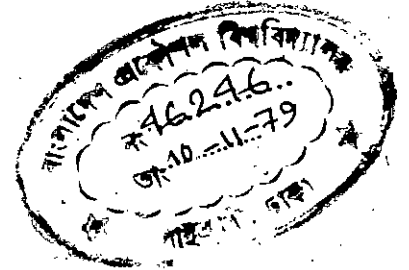 বাংলাদেশ প্রকৌশল বিশ্ববিদ্যালয়
নং 46246..
তাং 10-11-79
ঢাকা